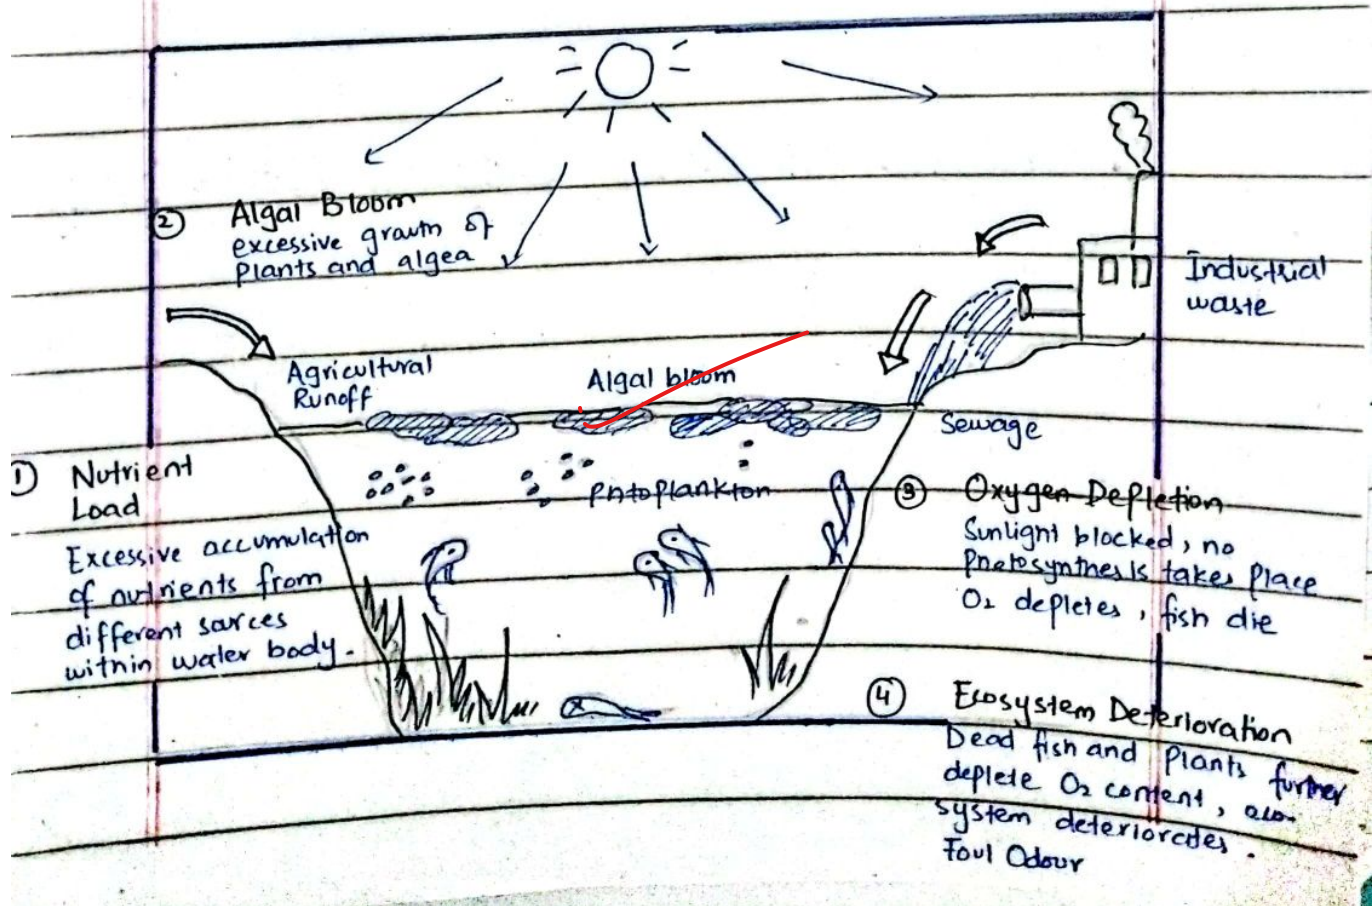 ② Algal Bloom
excessive growth of
Plants and algea
Industrial
waste
Agricultural
Runoff
Algal bloom
Sewage
① Nutrient
Load
Excessive accumulation
of nutrients from
different sarces
within water body.
Phtoplankton
③ Oxygen Depletion
Sunlight blocked, no
Photosynthesis takes place
O₂ depletes, fish die
④ Ecosystem Deterioration
Dead fish and Plants further
deplete O₂ content, eco-
system deteriorates.
Foul Odour